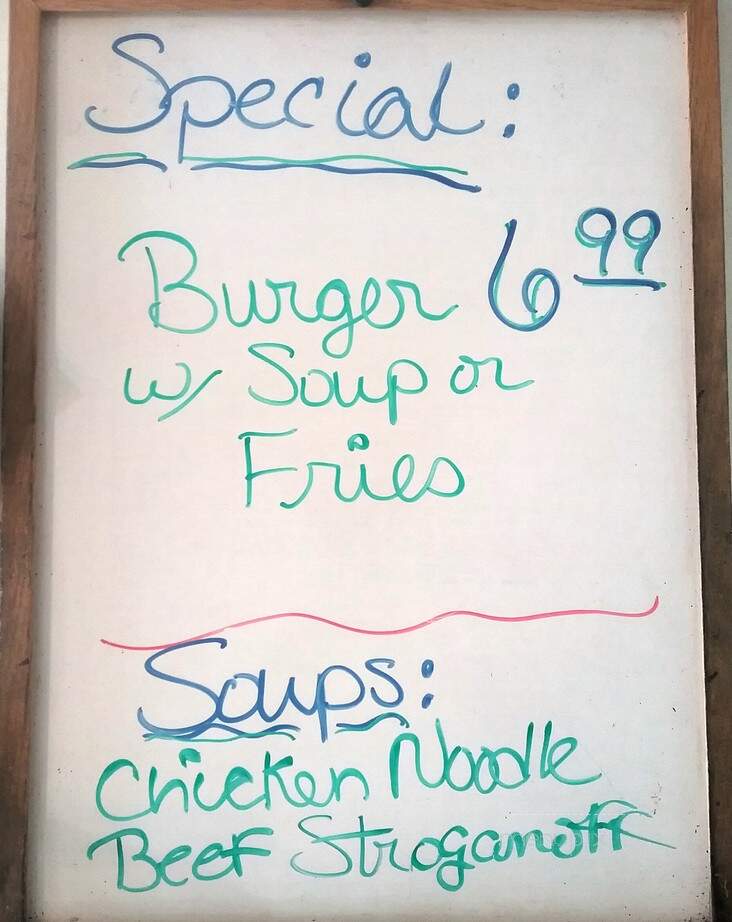 Special:
Burger 6 99
w/ Soup or
Fries
Soups:
Chicken Noodle
Beef Stroganoff